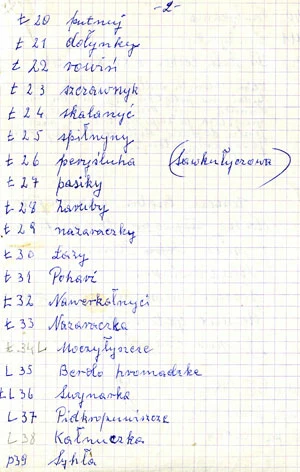 -2-
ł 20 putnyj
ł 21 dołynky
ł 22 rowiń
ł 23 szczawnyk
ł 24 skałanyć
ł 25 spiłnyny
ł 26 peresłuha (Sawkułyczowa)
ł 27 pasiky
ł 28 Zaruby
ł 29 nazaraczky
ł 30 Łazy
ł 31 Pohari
ł 32 Nawerkałnyci
ł 33 Nazaraczka
ł 34 L Moczyłyszcze
L 35 Berdo hromadzke
łL 36 Swynarka
L 37 Pidkropuwiszcze
L 38 Kałniczka
p 39 Sykła